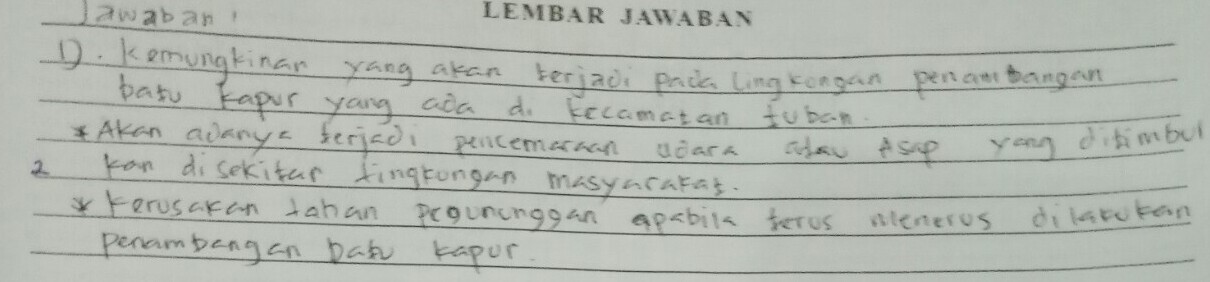 LEMBAR JAWABAN
Jawaban :
1). Kemungkinan yang akan terjadi pada lingkongan penambangan
batu kapur yang ada di kecamatan tuban.
* Akan adanya terjadi pencemaraan udara atau Asap yang ditimbul
2 kan disekitar lingkongan masyarakat.
* kerusakan lahan pegununggan apabila terus menerus dilakukan
penambangan batu kapur.